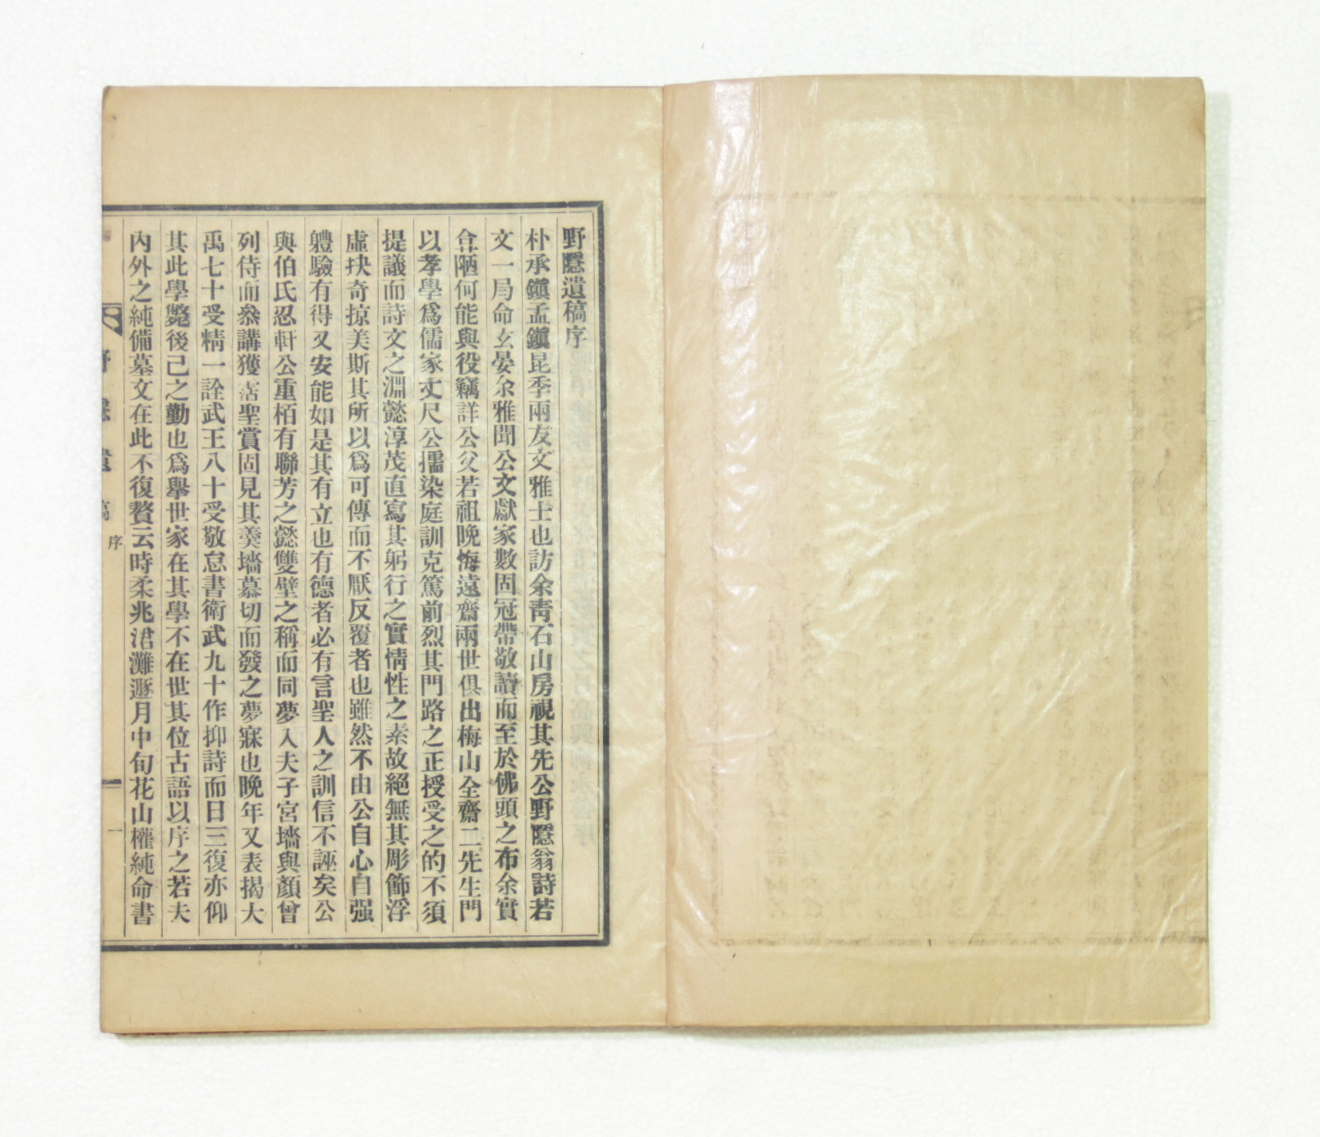 野隱遺稿序
朴承鎭孟鎭昆季兩友文雅士也訪余靑石山房視其先公野隱翁詩若
文一局命玄晏余雅聞公文獻家數固冠帶敬讀而至於佛頭之布余實
合陋何能與役竊詳公父若祖晚悔遠齋兩世俱出梅山全齋二先生門
以孝學爲儒家丈尺公擩染庭訓克篤前烈其門路之正授受之的不須
提議而詩文之淵懿淳茂直寫其躬行之實情性之素故絕無其彫飾浮
虛抉奇掠美斯其所以爲可傳而不厭反覆者也雖然不由公自心自强
軆驗有得又安能如是其有立也有德者必有言聖人之訓信不誣矣公
與伯氏忍軒公重栢有聯芳之懿雙壁之稱而同夢入夫子宮墻與顏曾
列侍而叅講獲聖賞固見其羹墻慕切而發之夢寐也晚年又表揭大
禹七十受精一詮武王八十受敬怠書衛武九十作抑詩而日三復亦仰
其此學斃後已之勤也爲擧世家在其學不在世其位古語以序之若夫
內外之純備墓文在此不復贅云時柔兆涒灘遯月中旬花山權純命書
野隱遺稿 序 一